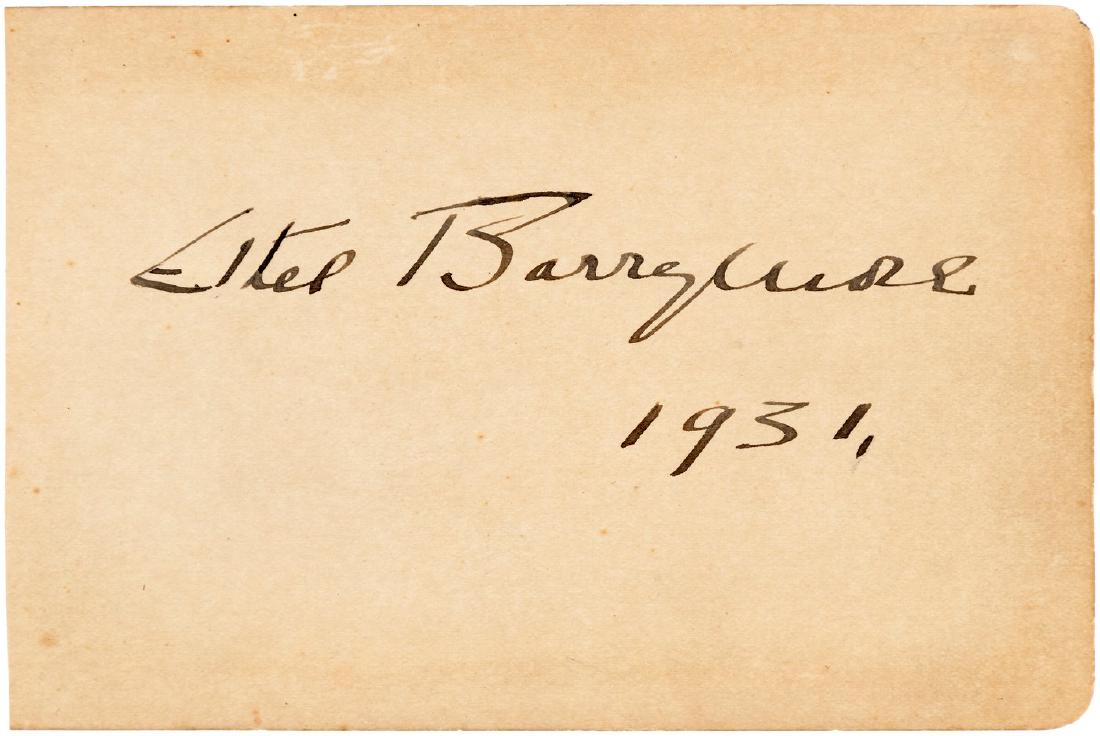 Ethel Barrymore
1931.